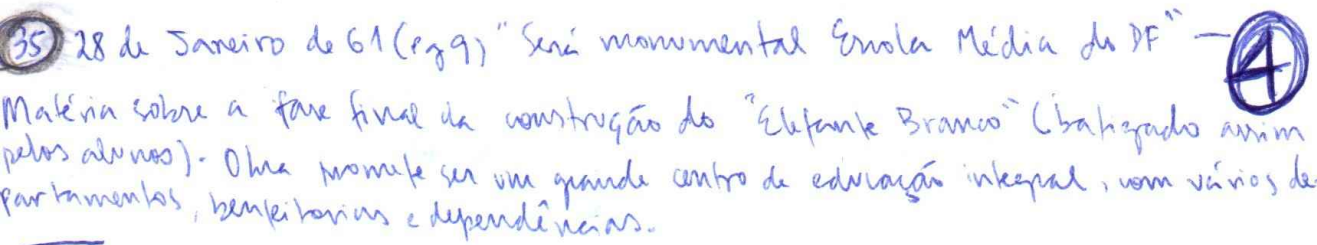 35 28 de Janeiro de 61 (pg 9) "Será monumental Escola Média do DF" — 4
Matéria sobre a fase final da construção do "Elefante Branco" (batizado assim
pelos alunos). Obra promete ser um grande centro de educação integral, com vários de-
partamentos, benfeitorias e dependências.